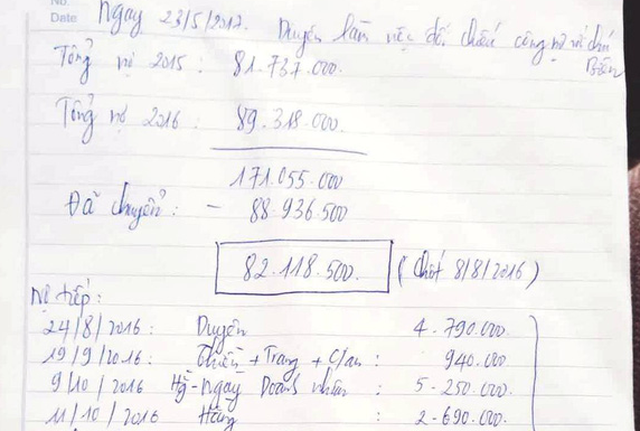 No.
Date
Ngày 23/5/2017. Duyên làm việc đối chiếu công nợ với chú
Tổng nợ 2015: 81.737.000.
Tổng nợ 2016: 89.318.000.
171.055.000
Đã chuyển: - 88.936.500
82.118.500. (Chốt 8/8/2016)
Nợ tiếp:
24/8/2016: Duyên 4.790.000.
19/9/2016: + Trang + C/an: 940.000.
9/10/2016 - Ngày Doanh nhân: 5.250.000.
11/10/2016 Hằng: 2.690.000.